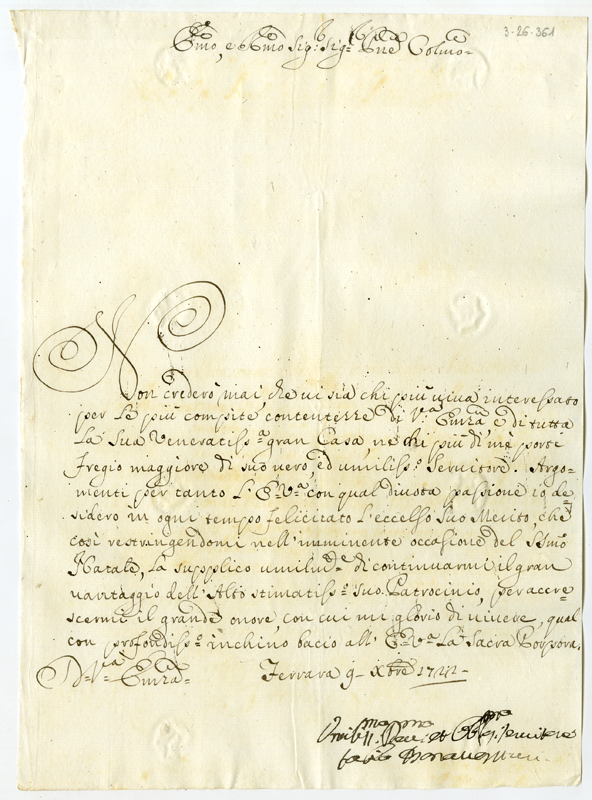 3-26-361
Emo, e Rmo Sig:r Sig:r Pne Colmo
Non crederò mai, che ui sia chi più uiua interessato
per le più compite contentezze di V:ra Emza e di tutta
la Sua Veneratiss:a gran Casa, ne chi più di me porti
fregio maggiore di suo uero, ed umiliss:o Seruitore. Argo-
menti per tanto l'E:V:a con qual diuota passione io de-
sidero in ogni tempo felicitato l'eccelso Suo Merito, che
così restringendomi nell'imminente occasione del Ssmo
Natale, La supplico umilm:te di continuarmi il gran
uantaggio dell'Alto stimatiss:o suo Patrocinio, per accre-
scermi il grande onore, con cui mi glorio di uiuere, qual
con profondiss:o inchino bacio all'E:V:a La Sacra Porpora.
D. V:ra Emza
Ferrara 9 Xbre